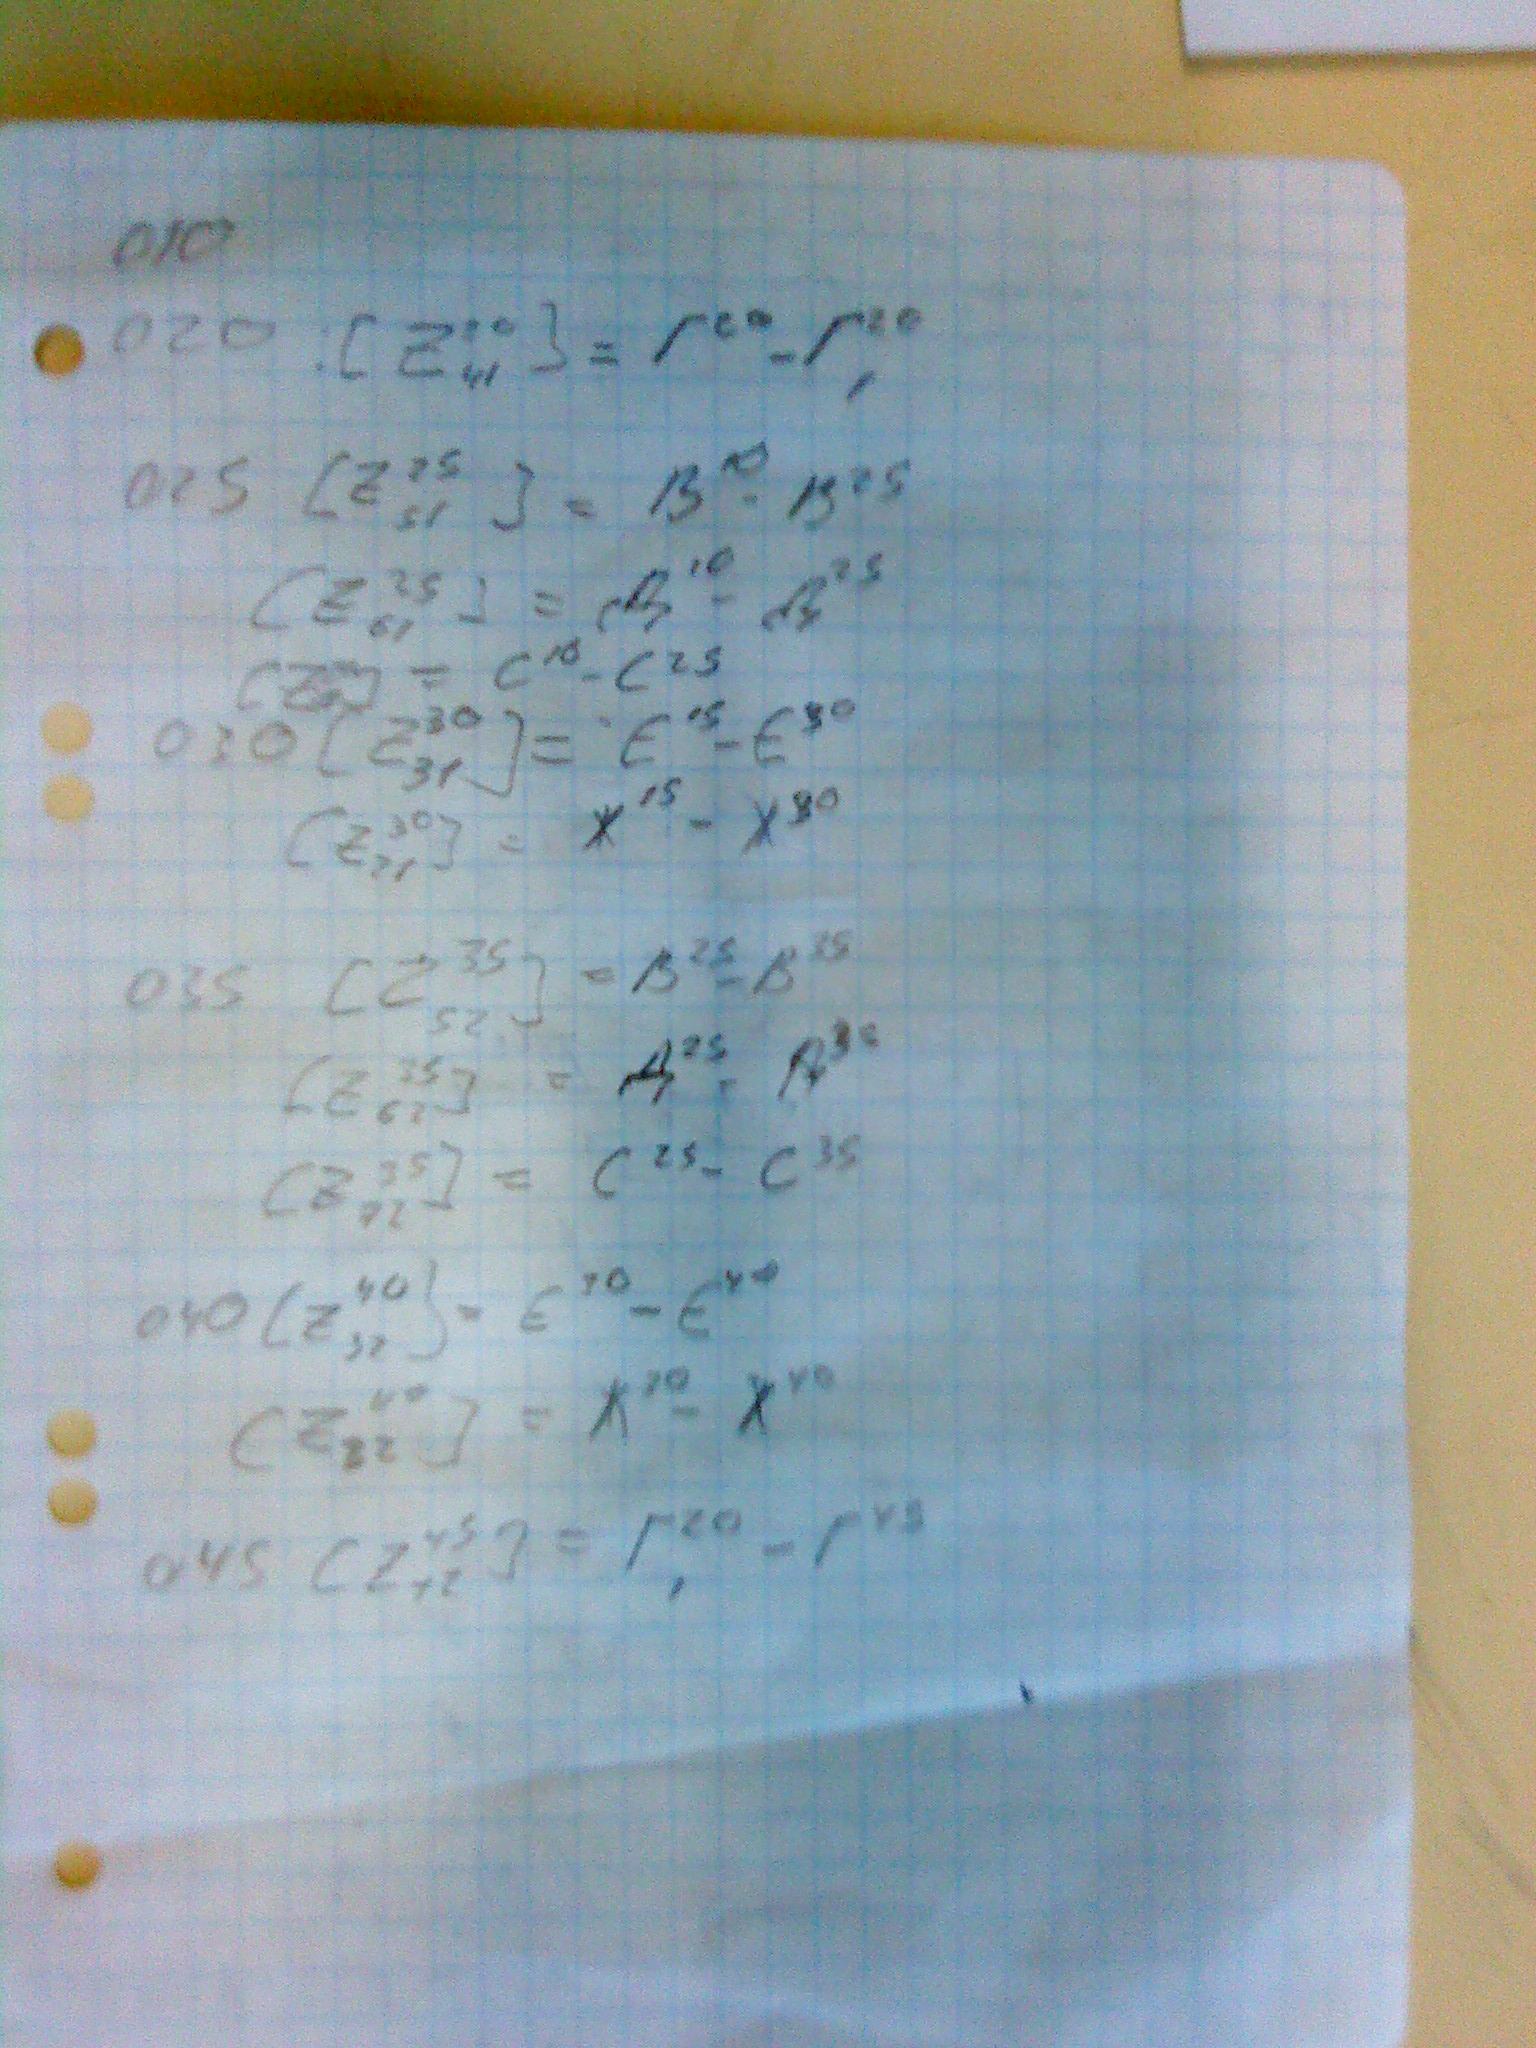 010
020 [Z²⁰₄₁] = Г²⁰ - Г₁²⁰
025 [Z²⁵₅₁] = B¹⁰ - B²⁵
[Z²⁵₆₁] = Д¹⁰ - Д²⁵
= C¹⁰ - C²⁵
030 [Z³⁰₃₁] = E¹⁵ - E³⁰
[Z³⁰₂₁] = X¹⁵ - X³⁰
035 [Z³⁵₅₂] = B²⁵ - B³⁵
[Z³⁵₆₂] = Д²⁵ - Д³⁵
[Z³⁵₇₂] = C²⁵ - C³⁵
040 [Z⁴⁰₃₂] = E³⁰ - E⁴⁰
[Z⁴⁰₈₂] = X³⁰ - X⁴⁰
045 [Z⁴⁵₄₂] = Г₁²⁰ - Г⁴⁵